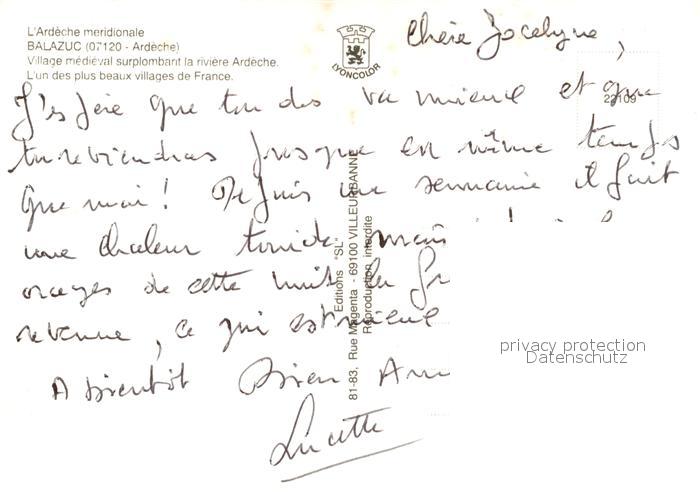 L'Ardèche meridionale
BALAZUC (07120 - Ardèche)
Village médiéval surplombant la rivière Ardèche.
L'un des plus beaux villages de France.
LYONCOLOR
Chère Jocelyne,
22109
J'espère que ton dos va mieux et que
tu reviendras presque en même temps
que moi! Depuis une semaine il fait
une chaleur torride mais
orages de cette nuit la fr
revenue, ce qui est mieux
A bientôt Bien Am
Lucette
Editions "SL"
81-83, Rue Magenta - 69100 VILLEURBANNE
Reproduction interdite
privacy protection
Datenschutz